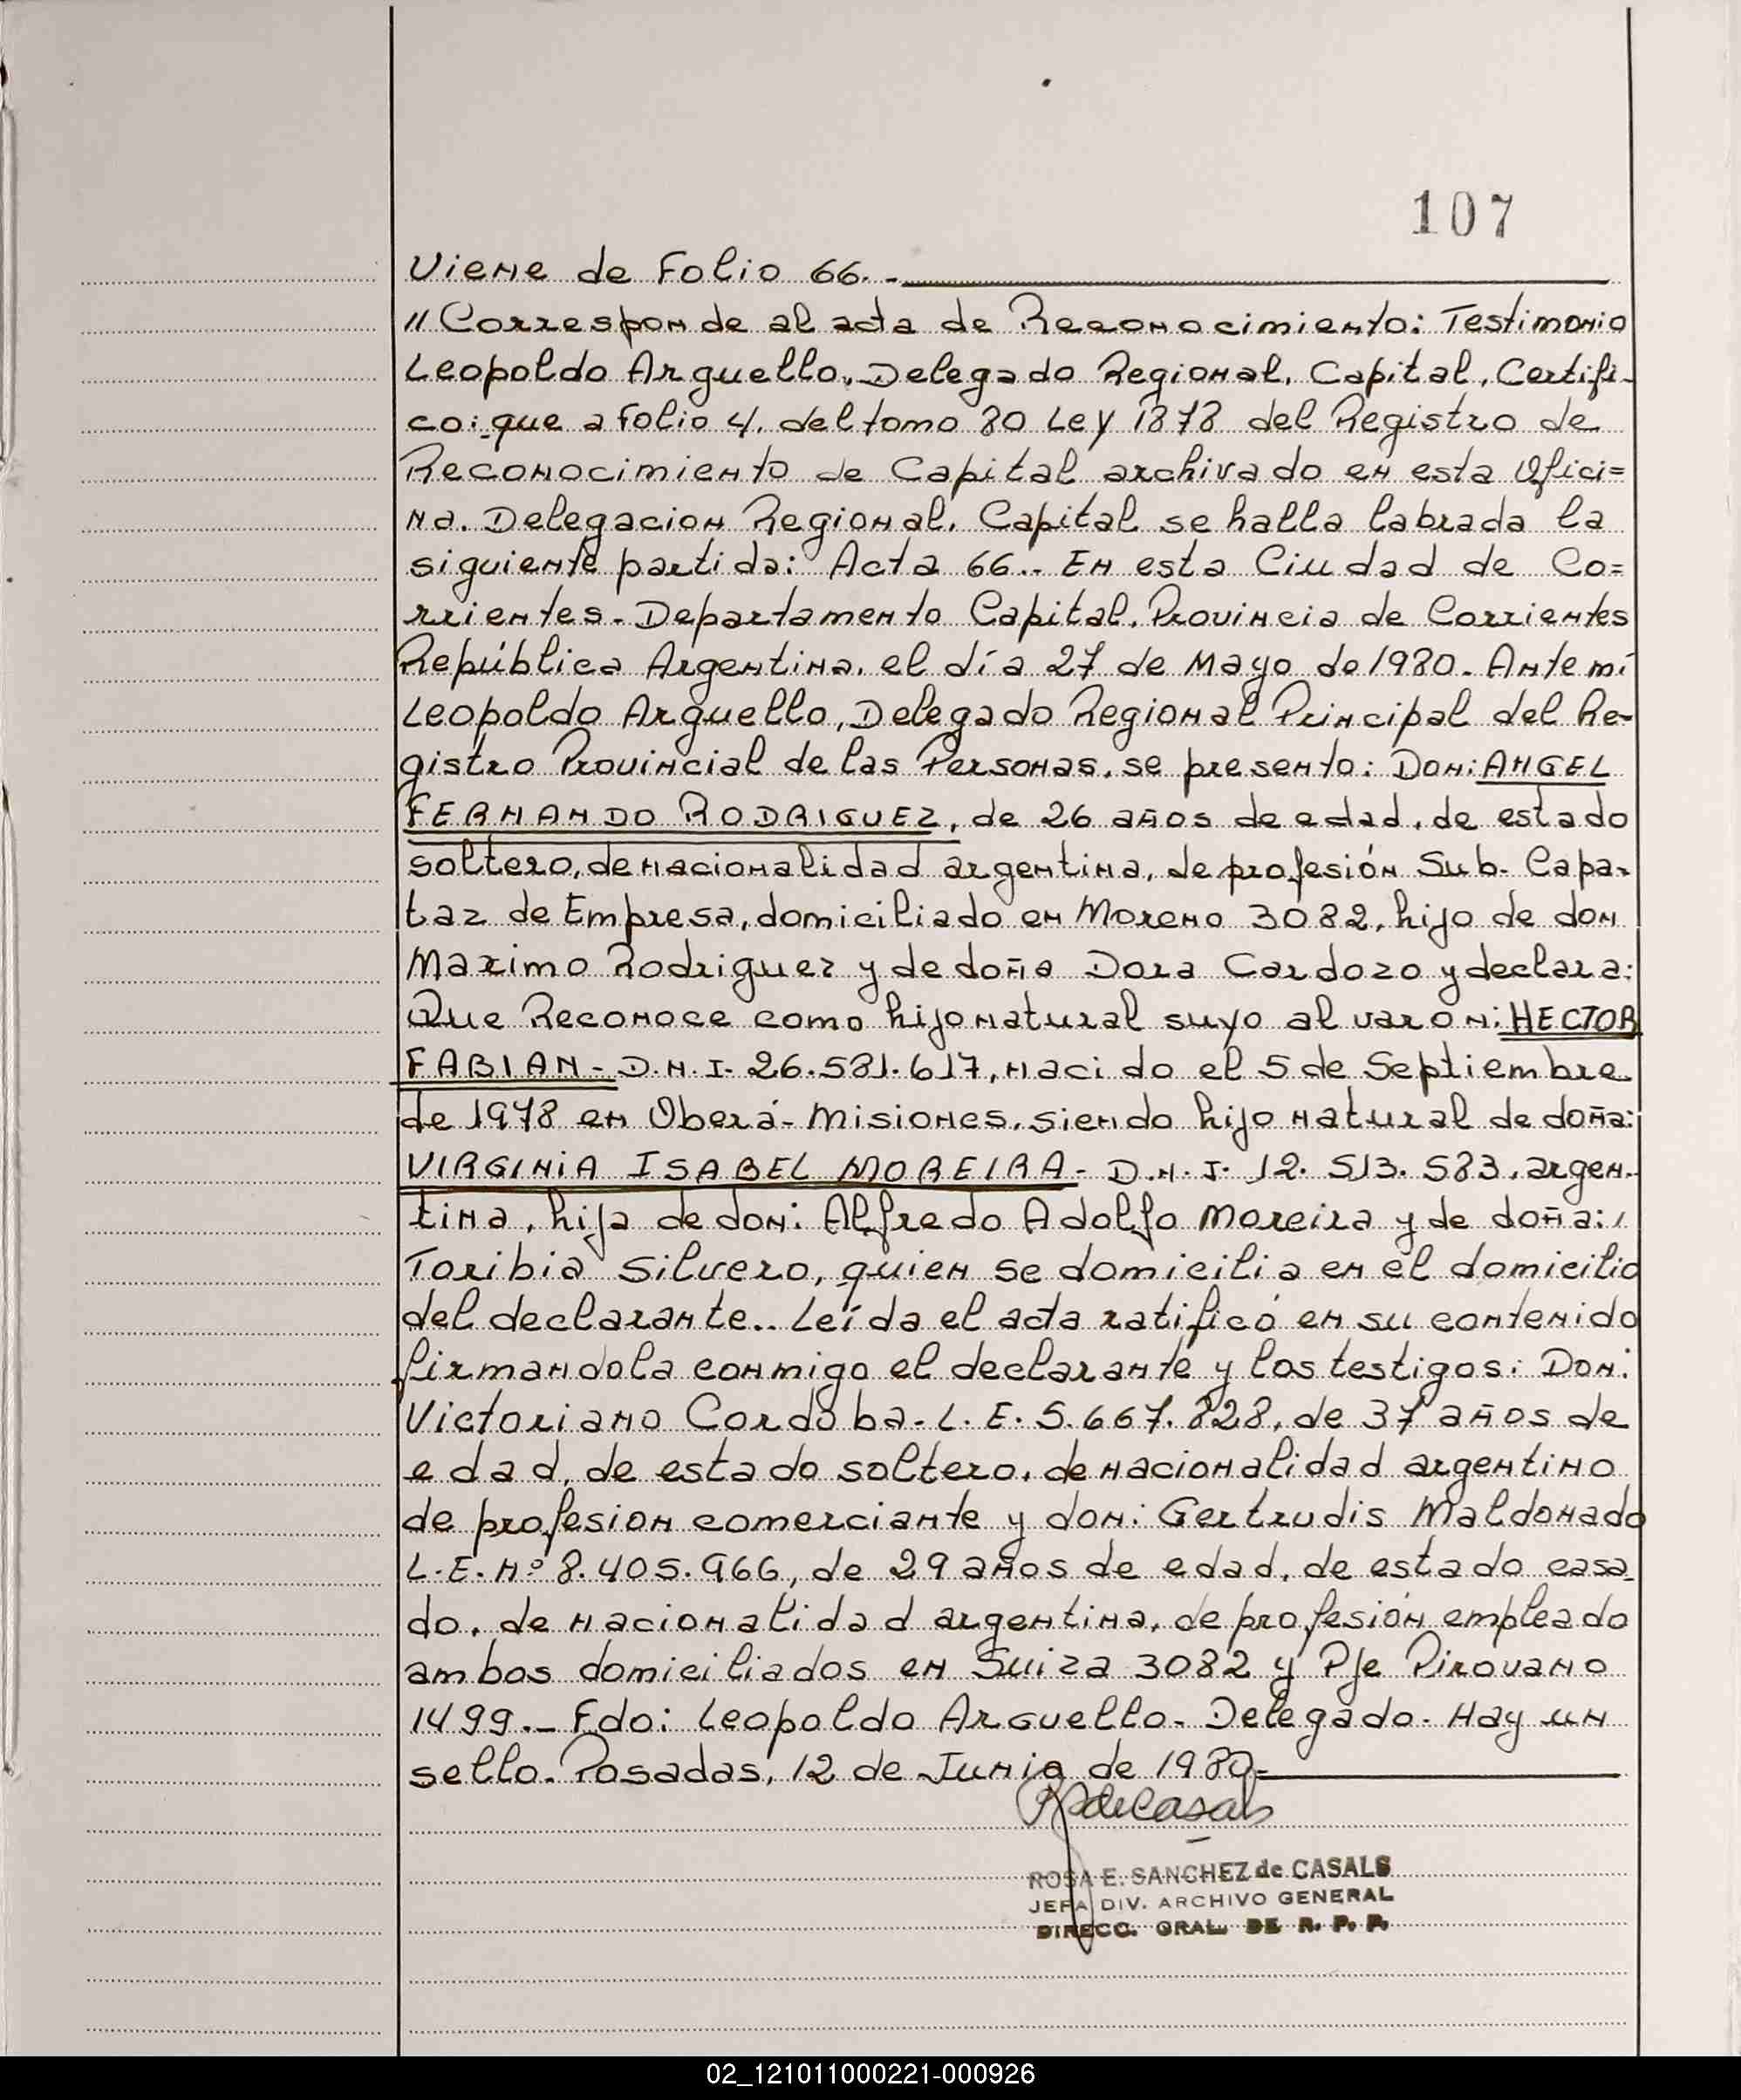 107
Viene de Folio 66.-
"Corresponde al acta de Reconocimiento: Testimonio
Leopoldo Arguello, Delegado Regional, Capital, Certifi-
co: que a Folio 4, del tomo 80 Ley 1878 del Registro de
Reconocimiento de Capital archivado en esta Ofici=
na. Delegacion Regional. Capital se halla labrada la
siguiente partida: Acta 66.. En esta Ciudad de Co=
rrientes. Departamento Capital, Provincia de Corrientes
República Argentina, el día 27 de Mayo de 1980. Ante mí
Leopoldo Arguello, Delegado Regional Principal del Re-
gistro Provincial de las Personas, se presento: Don: ANGEL
FERNANDO RODRIGUEZ, de 26 años de edad, de estado
soltero, de nacionalidad argentina, de profesión Sub. Capa-
taz de Empresa, domiciliado en Moreno 3082, hijo de don
Maximo Rodriguez y de doña Dora Cardozo y declara:
Que Reconoce como hijo natural suyo al varon: HECTOR
FABIAN - D.N.I. 26.581.617, nacido el 5 de Septiembre
de 1978 en Oberá - Misiones, siendo hijo natural de doña:
VIRGINIA ISABEL MOREIRA - D.N.I. 12.513.583, argen-
tina, hija de don: Alfredo Adolfo Moreira y de doña:,
Toribia Silvero, quien se domicilia en el domicilio
del declarante.. Leída el acta ratificó en su contenido
firmandola conmigo el declarante y los testigos: Don:
Victoriano Cordoba - L.E. 5.667.828, de 37 años de
edad, de estado soltero, de nacionalidad argentino
de profesion comerciante y don: Gertrudis Maldonado
L.E. Nº 8.405.966, de 29 años de edad, de estado casa-
do, de nacionalidad argentina, de profesión empleado
ambos domiciliados en Suiza 3082 y Pje Pirovano
1499._ Fdo: Leopoldo Arguello - Delegado - Hay un
sello. Posadas, 12 de Junio de 1980.-
RdeCasals
ROSA E. SANCHEZ de CASALS
JEFA DIV. ARCHIVO GENERAL
DIRECC. GRAL. DE R. P. P.
02_121011000221-000926